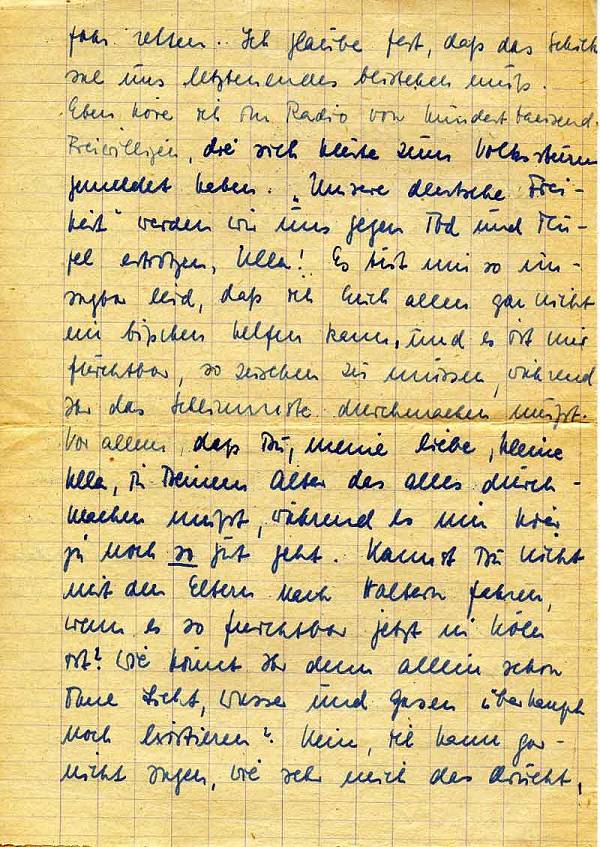 fahr retten. Ich glaube fest, daß das Schick
sal uns letztenendes beistehen muß.
Eben höre ich im Radio von hunderttausend
Freiwilligen, die sich heute zum Volkssturm
gemeldet haben. „Unsere deutsche Frei-
heit" werden wir uns gegen Tod und Teu-
fel ertrotzen, Ulla! Es tut mir so un-
sagbar leid, daß ich Euch allen gar nicht
ein bißchen helfen kann, und es ist mir
furchtbar, so zusehen zu müssen, während
Ihr das Schlimmste durchmachen müßt.
Vor allem, daß Du, meine liebe, kleine
Ulla, in Deinem Alter das alles durch-
machen mußt, während es mir hier
ja noch so gut geht. Kannst Du nicht
mit den Eltern nach Haltern fahren,
wenn es so furchtbar jetzt in Köln
ist? Wie könnt Ihr denn allein schon
ohne Licht, Wasser und Gas überhaupt
noch existieren? Nein, ich kann gar-
nicht sagen, wie sehr mich das drückt,